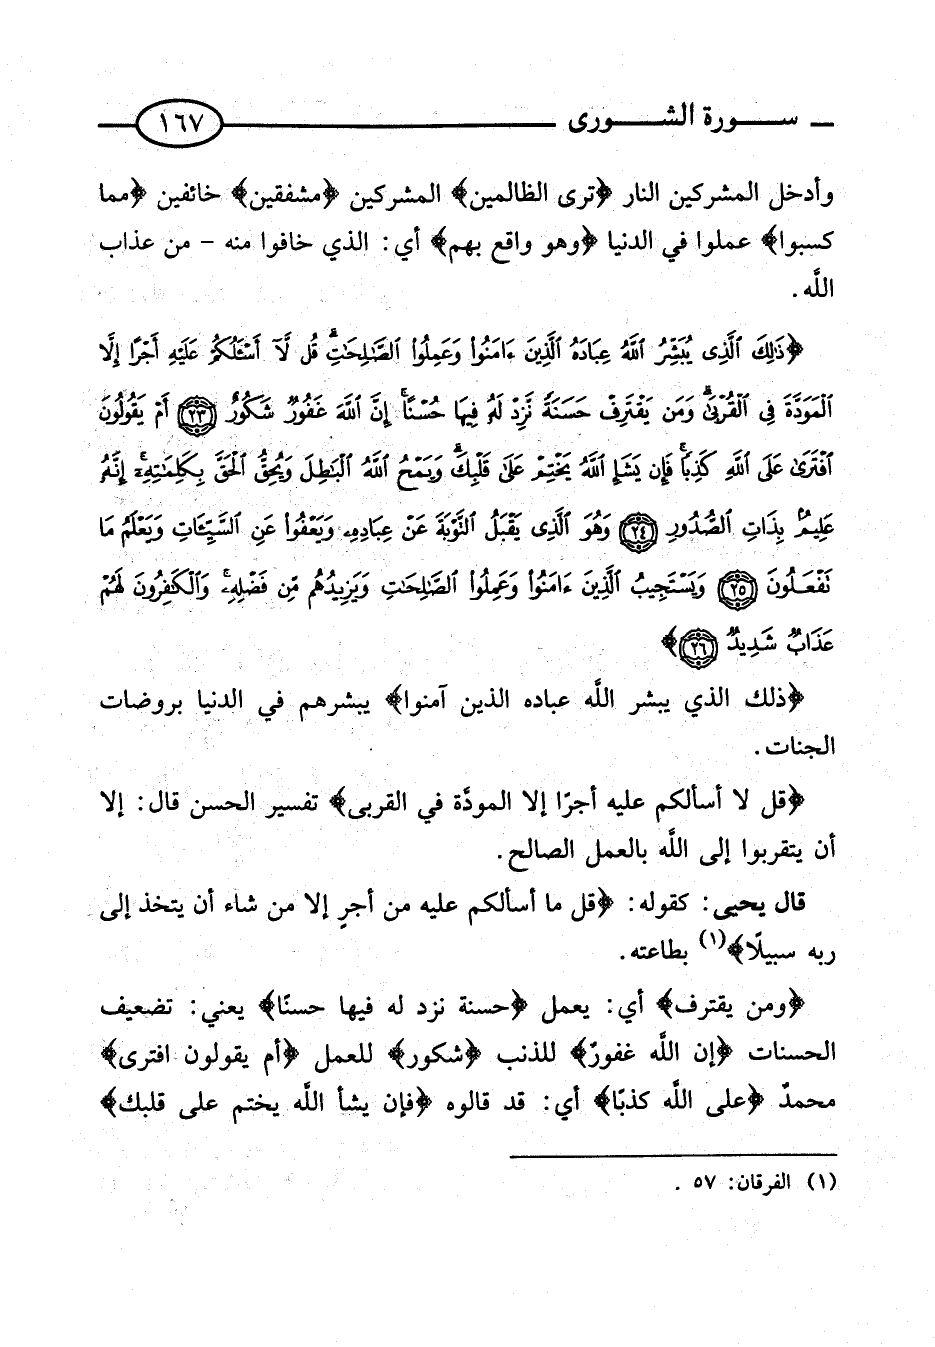 سورة الشورى ١٦٧
وأدخل المشركين النار ﴿ترى الظالمين﴾ المشركين ﴿مشفقين﴾ خائفين ﴿مما
كسبوا﴾ عملوا في الدنيا ﴿وهو واقع بهم﴾ أي: الذي خافوا منه - من عذاب
اللَّه.
﴿ذَٰلِكَ ٱلَّذِى يُبَشِّرُ ٱللَّهُ عِبَادَهُ ٱلَّذِينَ ءَامَنُوا۟ وَعَمِلُوا۟ ٱلصَّٰلِحَٰتِۗ قُل لَّآ أَسْـَٔلُكُمْ عَلَيْهِ أَجْرًا إِلَّا
ٱلْمَوَدَّةَ فِى ٱلْقُرْبَىٰۗ وَمَن يَقْتَرِفْ حَسَنَةً نَّزِدْ لَهُۥ فِيهَا حُسْنًاۚ إِنَّ ٱللَّهَ غَفُورٌ شَكُورٌ ٢٣ أَمْ يَقُولُونَ
ٱفْتَرَىٰ عَلَى ٱللَّهِ كَذِبًاۖ فَإِن يَشَإِ ٱللَّهُ يَخْتِمْ عَلَىٰ قَلْبِكَۗ وَيَمْحُ ٱللَّهُ ٱلْبَٰطِلَ وَيُحِقُّ ٱلْحَقَّ بِكَلِمَٰتِهِۦٓۚ إِنَّهُۥ
عَلِيمٌۢ بِذَاتِ ٱلصُّدُورِ ٢٤ وَهُوَ ٱلَّذِى يَقْبَلُ ٱلتَّوْبَةَ عَنْ عِبَادِهِۦ وَيَعْفُوا۟ عَنِ ٱلسَّيِّـَٔاتِ وَيَعْلَمُ مَا
تَفْعَلُونَ ٢٥ وَيَسْتَجِيبُ ٱلَّذِينَ ءَامَنُوا۟ وَعَمِلُوا۟ ٱلصَّٰلِحَٰتِ وَيَزِيدُهُم مِّن فَضْلِهِۦۚ وَٱلْكَٰفِرُونَ لَهُمْ
عَذَابٌ شَدِيدٌ ٢٦﴾
﴿ذلك الذي يبشر اللَّه عباده الذين آمنوا﴾ يبشرهم في الدنيا بروضات
الجنات.
﴿قل لا أسألكم عليه أجرًا إلا المودَّة في القربى﴾ تفسير الحسن قال: إلا
أن يتقربوا إلى اللَّه بالعمل الصالح.
قال يحيى: كقوله: ﴿قل ما أسألكم عليه من أجرٍ إلا من شاء أن يتخذ إلى
ربه سبيلًا﴾(١) بطاعته.
﴿ومن يقترف﴾ أي: يعمل ﴿حسنة نزد له فيها حسنًا﴾ يعني: تضعيف
الحسنات ﴿إن اللَّه غفورٌ﴾ للذنب ﴿شكور﴾ للعمل ﴿أم يقولون افترى﴾
محمدٌ ﴿على اللَّه كذبًا﴾ أي: قد قالوه ﴿فإن يشأ اللَّه يختم على قلبك﴾
(١) الفرقان: ٥٧ .